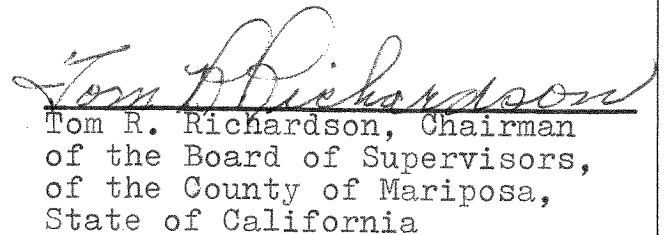 Tom R Richardson
Tom R. Richardson, Chairman
of the Board of Supervisors,
of the County of Mariposa,
State of California